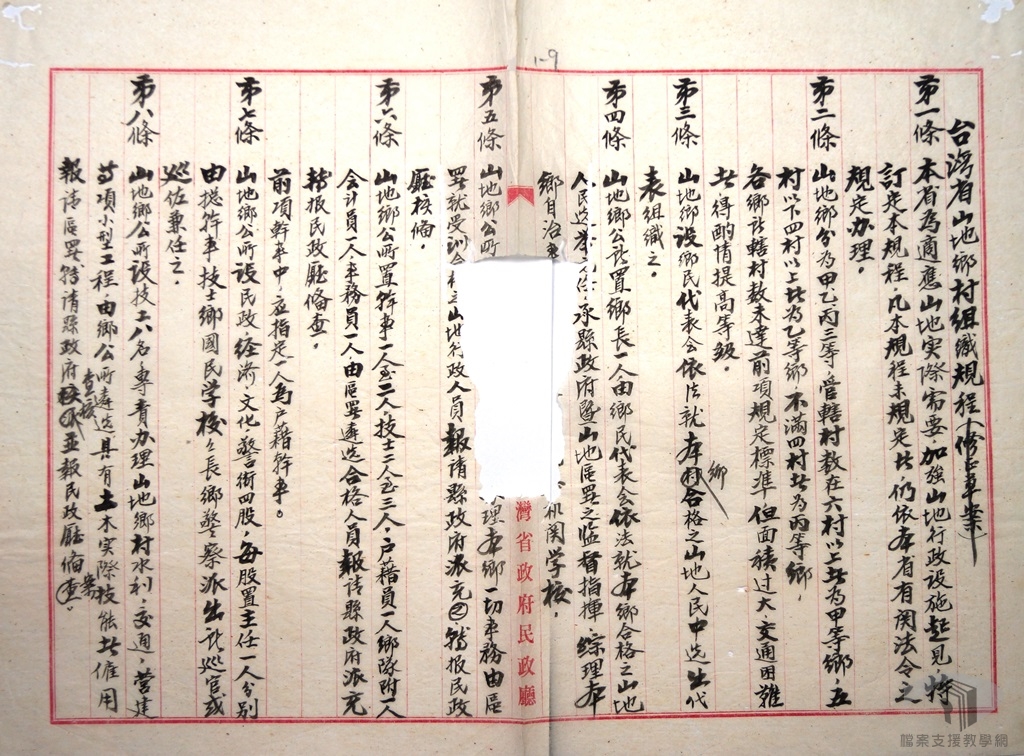 1-9
台灣省山地鄉村組織規程(修正草案)
第一條 本省為適應山地实際需要加強山地行政设施起見特
訂定本規程,凡本規程未規定者仍依本省有関法令之
規定办理。
第二條 山地鄉分為甲乙丙三等管轄村数在六村以上者為甲等鄉,五
村以下四村以上者為乙等鄉,不滿四村者為丙等鄉,
各鄉所轄村数未達前項規定標準但面積过大交通困難
者得酌情提高等級。
第三條 山地鄉设鄉民代表会依法就本村鄉合格之山地人民中选出代
表組織之。
第四條 山地鄉公所置鄉長一人由鄉民代表会依法就本鄉合格之山地
人民选举 承縣政府暨山地區署之监督指揮 綜理本
鄉自治 机関学校,
第五條 山地鄉公所 理本鄉一切事務由區
署就受訓合格之山地行政人員報請縣政府派充 轉报民政
廳核備。
第六條 山地鄉公所置幹事一人至二人,技士二人至三人,户藉員一人鄉隊附一人
会计員一人事務員一人由區署遴选合格人員報請縣政府派充
轉报民政廳備查。
前項幹事中应指定一人為户藉幹事。
第七條 山地鄉公所設民政经济文化警衛四股,每股置主任一人分别
由总幹事技士鄉國民学校校長鄉警察派出所巡官或
巡佐兼任之
第八條 山地鄉公所設技工八名專責办理山地鄉村水利,交通,营建
等項小型工程,由鄉公所遴选具有土木实際技能者僱用
報請區署轉請縣政府核准查核並報民政廳備查案。
灣省政府民政廳
檔案支援教學網